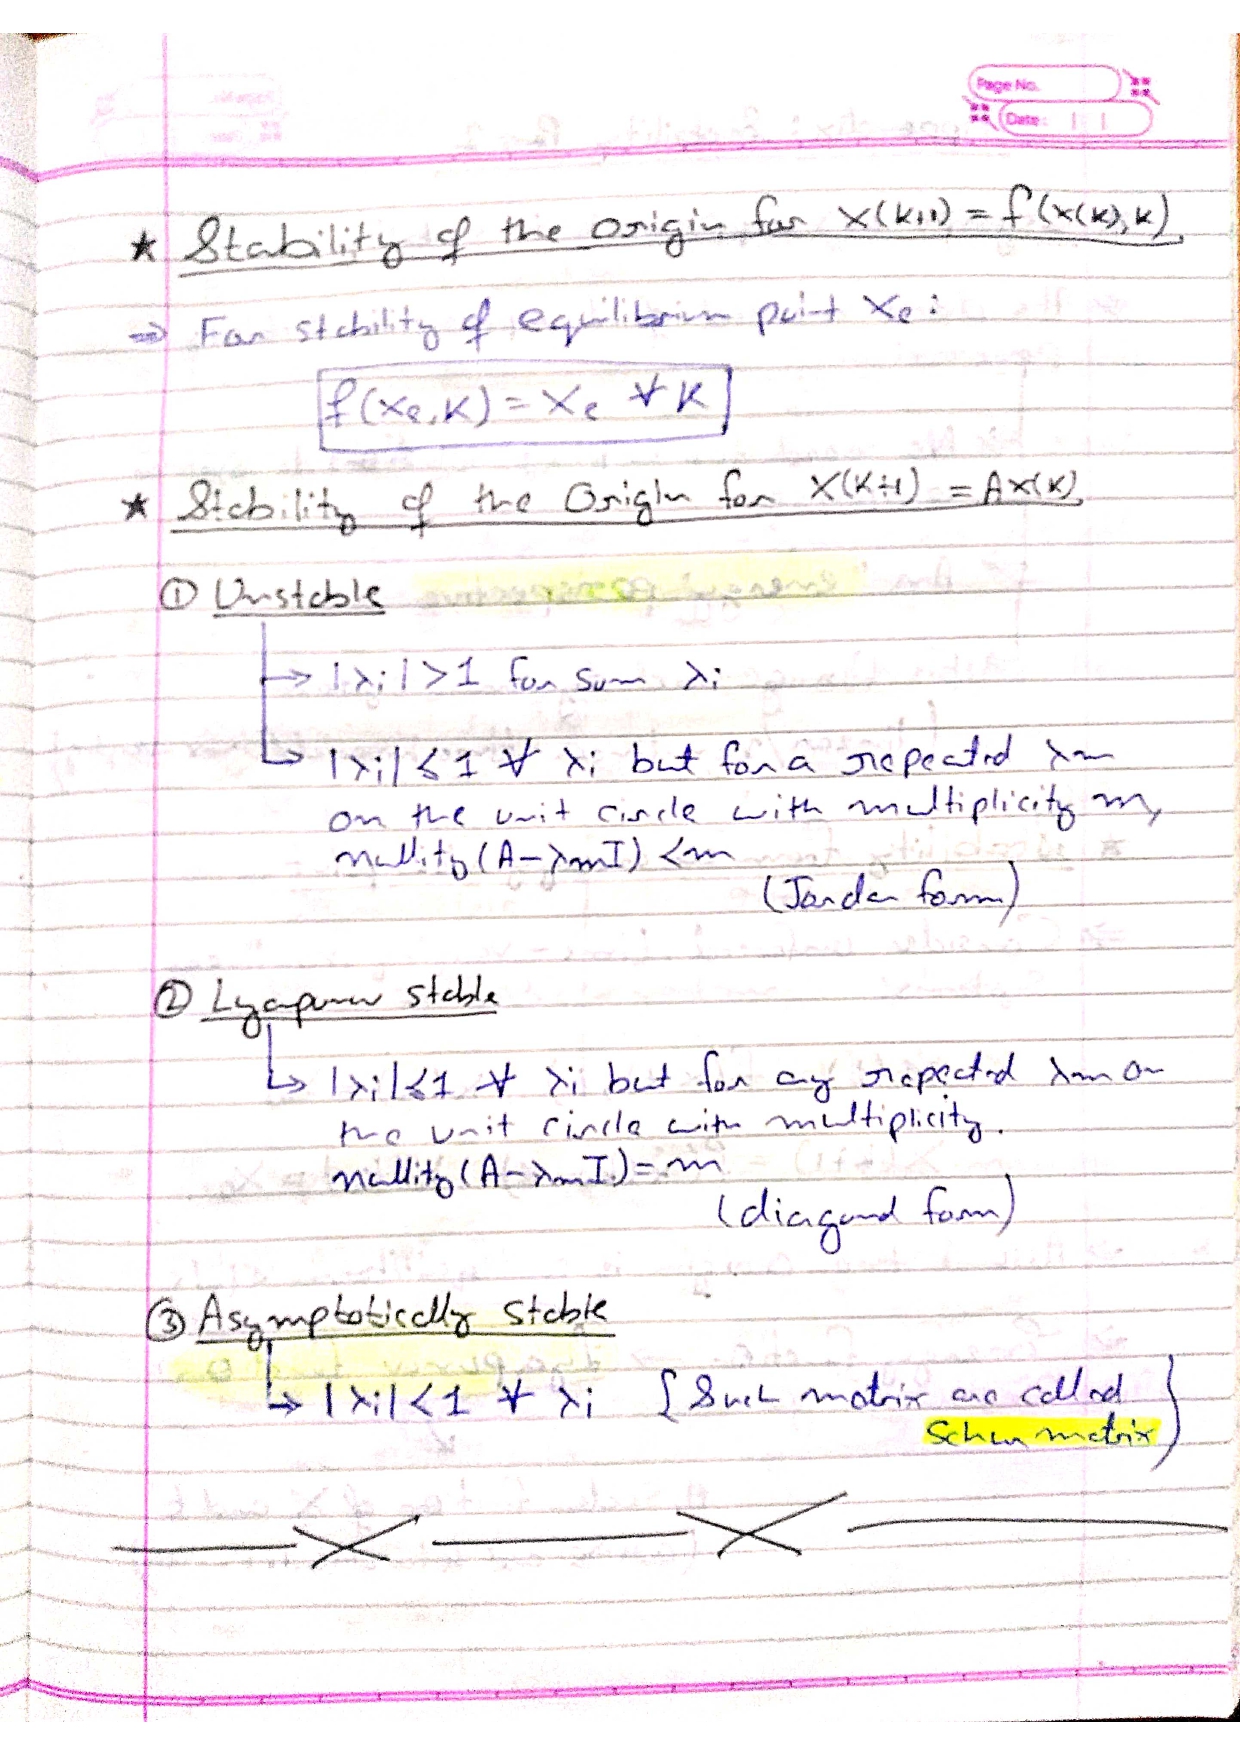 Page No.
Date: | |
★ Stability of the Origin for x(k+1) = f(x(k), k)
⇒ For stability of equilibrium point xe :
f(xe, k) = xe ∀ k
★ Stability of the Origin for x(k+1) = Ax(k)
① Unstable
→ |λi| > 1 for sum λi
→ |λi| ≤ 1 ∀ λi but for a repeated λm
on the unit circle with multiplicity m,
nullity (A - λmI) < m
(Jordan form)
② Lyapunov stable
→ |λi| ≤ 1 ∀ λi but for any repeated λm on
the unit circle with multiplicity.
nullity (A - λmI) = m
(diagonal form)
③ Asymptotically stable
→ |λi| < 1 ∀ λi { Such matrix are called
Schur matrix }